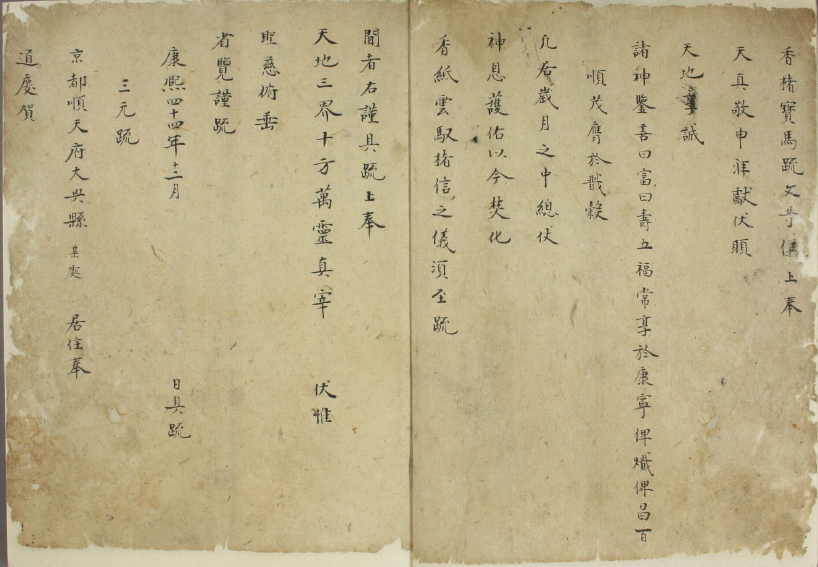 香楮寶馬疏文等儀上奉
天真敬申洋獻伏願
天地 誠
諸神鑒喜曰富曰壽五福常享於康寧俾熾俾昌百
順茂膺於戩穀
凡居歲月之中總伏
神恩護佑以今焚化
香紙雲馭楮信之儀湏至疏
聞者右謹具疏上奉
天地三界十方萬靈真宰 伏惟
聖慈俯垂
省覽謹疏
康熙四十四年十二月 日具疏
三元疏
京都順天府大興縣某處 居住奉
道慶賀